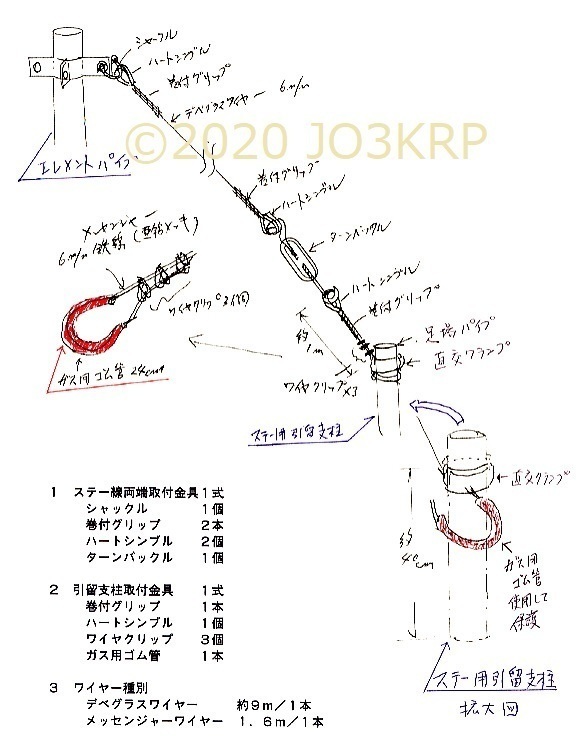 シャックル
ハートシンブル
巻付グリップ
デベグラスワイヤー 6m/m
©2020 JO3KRP
エレメントパイプ
巻付グリップ
ハートシンブル
ターンバックル
メッセンジャー
6m/m 鉄線 (亜鉛メッキ)
ハートシンブル
巻付グリップ
ワイヤクリップ3個
約1m
足場パイプ
直交クランプ
ガス用ゴム管 24cm
ワイヤクリップ×3
ステー用引留支柱
直交クランプ
約40cm
ガス用
ゴム管
使用して
保護
1 ステー線両端取付金具 1式
シャックル 1個
巻付グリップ 2本
ハートシンブル 2個
ターンバックル 1個
2 引留支柱取付金具 1式
巻付グリップ 1本
ハートシンブル 1個
ワイヤクリップ 3個
ガス用ゴム管 1本
3 ワイヤー種別
デベグラスワイヤー 約9m/1本
メッセンジャーワイヤー 1.6m/1本
ステー用引留支柱
拡大図